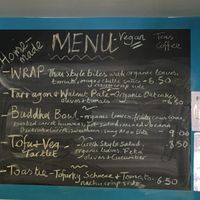 Home-made
MENU
Vegan
Teas
Coffee
WRAP - Thai Style Bites with organic leaves,
tomato, mayo & chilli sauce 6.50
Tarragon & Walnut Pate - Organic Oatcakes
olives + tomato 6.50
Buddha Bowl - organic leaves,
9.00
Tofu + Veg - Greek Style Salad
Tartlet organic leaves, Feta, 8.50
olives + cucumber
Toastie - Tofurky, Scheese + Tomato 6.50
nacho crisp side